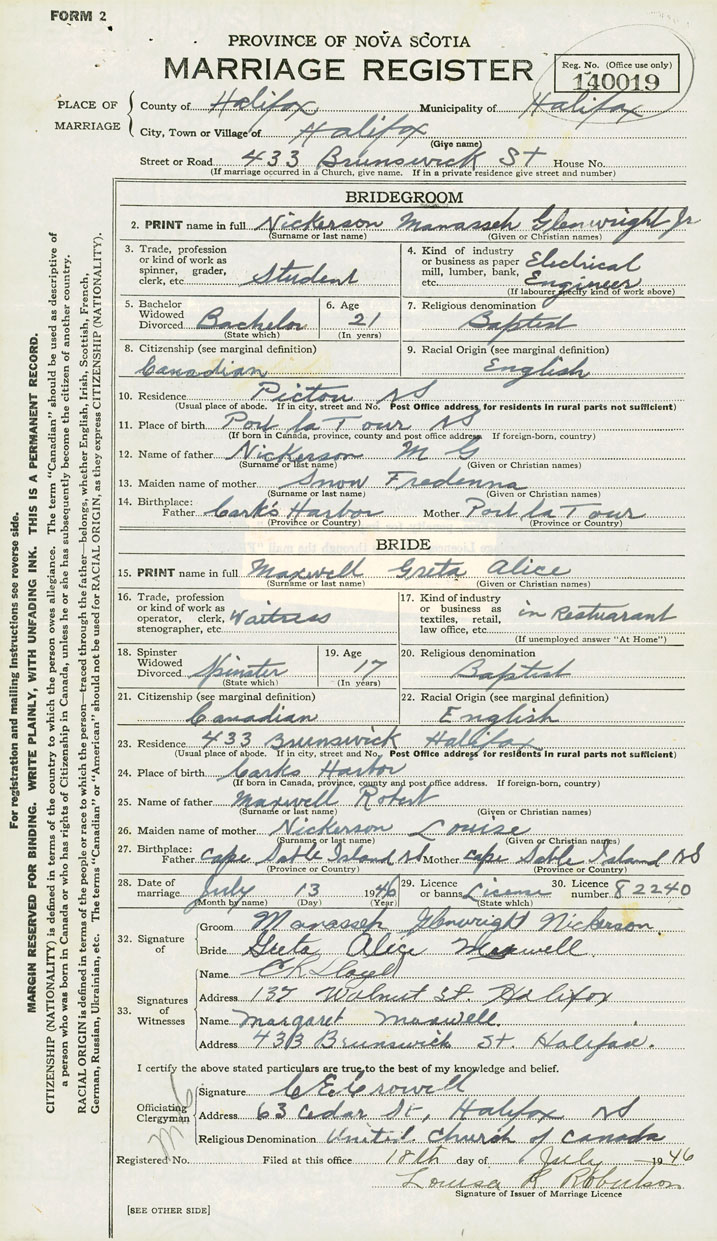 FORM 2
PROVINCE OF NOVA SCOTIA
MARRIAGE REGISTER
Reg. No. (Office use only)
140019
PLACE OF MARRIAGE
County of Halifax Municipality of Halifax
City, Town or Village of Halifax
(Give name)
Street or Road 433 Brunswick St House No.
(If marriage occurred in a Church, give name. If in a private residence give street and number)
BRIDEGROOM
2. PRINT name in full Nickerson Manasseh Glenwright Jr
(Surname or last name) (Given or Christian names)
3. Trade, profession or kind of work as spinner, grader, clerk, etc. Student
4. Kind of industry or business as paper mill, lumber, bank, etc. Electrical Engineer
(If labourer specify kind of work above)
5. Bachelor Widowed Divorced Bachelor
(State which)
6. Age 21
(In years)
7. Religious denomination
Baptist
8. Citizenship (see marginal definition)
Canadian
9. Racial Origin (see marginal definition)
English
10. Residence Pictou NS
(Usual place of abode. If in city, street and No. Post Office address for residents in rural parts not sufficient)
11. Place of birth Port la Tour NS
(If born in Canada, province, county and post office address. If foreign-born, country)
12. Name of father Nickerson M G
(Surname or last name) (Given or Christian names)
13. Maiden name of mother Snow Fredenna
(Surname or last name) (Given or Christian names)
14. Birthplace: Father Cark's Harbor Mother Port la Tour
(Province or Country) (Province or Country)
BRIDE
15. PRINT name in full Maxwell Greta Alice
(Surname or last name) (Given or Christian names)
16. Trade, profession or kind of work as operator, clerk, stenographer, etc. Waitress
17. Kind of industry or business as textiles, retail, law office, etc. in Restuarant
(If unemployed answer "At Home")
18. Spinster Widowed Divorced Spinster
(State which)
19. Age 17
(In years)
20. Religious denomination
Baptist
21. Citizenship (see marginal definition)
Canadian
22. Racial Origin (see marginal definition)
English
23. Residence 433 Brunswick Halifax
(Usual place of abode. If in city, street and No. Post Office address for residents in rural parts not sufficient)
24. Place of birth Carks Harbor
(If born in Canada, province, county and post office address. If foreign-born, country)
25. Name of father Maxwell Robert
(Surname or last name) (Given or Christian names)
26. Maiden name of mother Nickerson Louise
(Surname or last name) (Given or Christian names)
27. Birthplace: Father Cape Sable Island NS Mother Cape Sable Island NS
(Province or Country) (Province or Country)
28. Date of marriage July 13 1946
(Month by name) (Day) (Year)
29. Licence or banns License
(State which)
30. Licence number 82240
32. Signature of
Groom Manasseh Glenwright Nickerson
Bride Greta Alice Maxwell
33. Signatures of Witnesses
Name C K Lloyd
Address 137 Walnut St. Halifax
Name Margaret Maxwell.
Address 433 Brunswick St. Halifax.
I certify the above stated particulars are true to the best of my knowledge and belief.
Officiating Clergyman
Signature C E Crowell
Address 63 Cedar St, Halifax NS
Religious Denomination United Church of Canada
Registered No. Filed at this office 18th day of July 1946
Louisa R Robertson
Signature of Issuer of Marriage Licence
[SEE OTHER SIDE]
For registration and mailing instructions see reverse side.
MARGIN RESERVED FOR BINDING. WRITE PLAINLY, WITH UNFADING INK. THIS IS A PERMANENT RECORD.
CITIZENSHIP (NATIONALITY) is defined in terms of the country to which the person owes allegiance. The term "Canadian" should be used as descriptive of
a person who was born in Canada or who has rights of Citizenship in Canada, unless he or she has subsequently become the citizen of another country.
RACIAL ORIGIN is defined in terms of the people or race to which the person—traced through the father—belongs, whether English, Irish, Scottish, French,
German, Russian, Ukrainian, etc. The terms "Canadian" or "American" should not be used for RACIAL ORIGIN, as they express CITIZENSHIP (NATIONALITY).